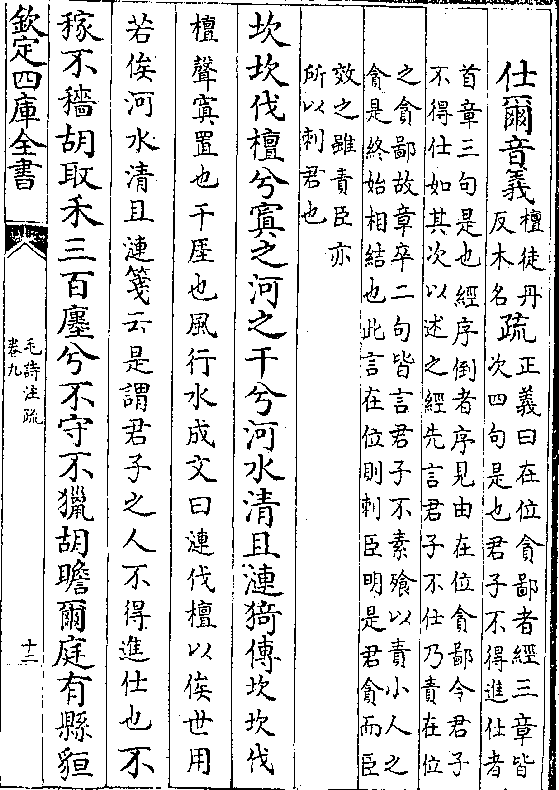 仕爾音義檀徒丹反木名疏正義曰在位貪鄙者經三章皆次四句是也君子不得進仕者
首章三句是也經序倒者序見由在位貪鄙令君子
不得仕如其次以述之經先言君子不仕乃責在位
之貪鄙故章卒二句皆言君子不素飧以責小人之
貪是終始相結也此言在位則刺臣明是君貪而臣
效之雖責臣亦
所以刺君也
坎坎伐檀兮寘之河之干兮河水清且漣猗傳坎坎伐
檀聲寘置也干厓也風行水成文曰漣伐檀以俟世用
若俟河水清且漣箋云是謂君子之人不得進仕也不
稼不穡胡取禾三百廛兮不守不獵胡瞻爾庭有縣貆
欽定四庫全書
毛詩注疏
卷九
十二